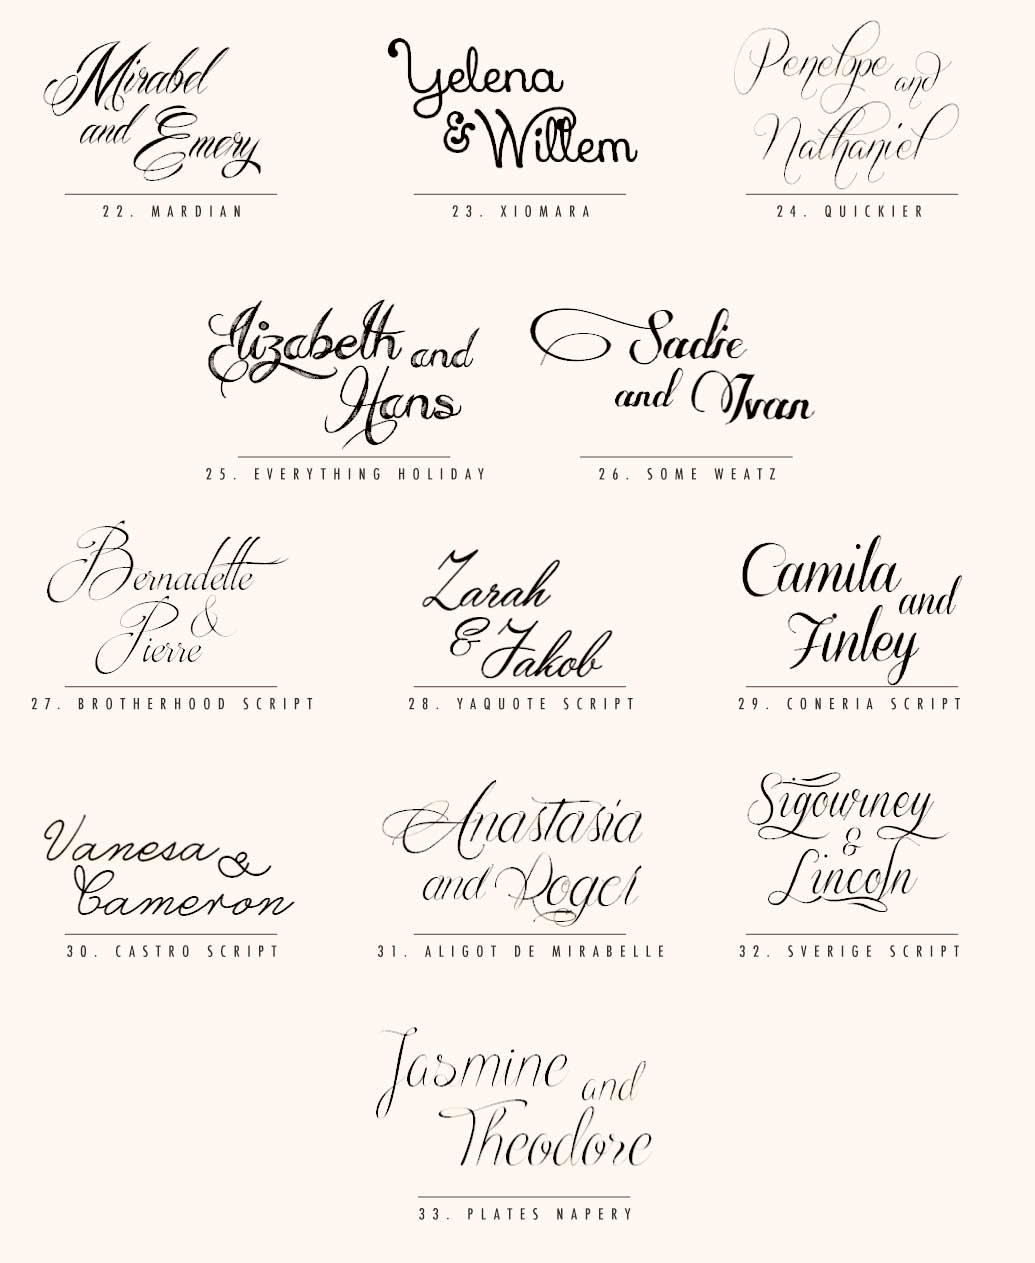 Mirabel
and Emery
22. MARDIAN
Yelena
& Willem
23. XIOMARA
Penelope and
Nathaniel
24. QUICKIER
Elizabeth and
Hans
25. EVERYTHING HOLIDAY
Sadie
and Ivan
26. SOME WEATZ
Bernadette
&
Pierre
27. BROTHERHOOD SCRIPT
Zarah
& Jakob
28. YAQUOTE SCRIPT
Camila
and
Finley
29. CONERIA SCRIPT
Vanesa &
Cameron
30. CASTRO SCRIPT
Anastasia
and Roger
31. ALIGOT DE MIRABELLE
Sigourney
&
Lincoln
32. SVERIGE SCRIPT
Jasmine and
Theodore
33. PLATES NAPERY